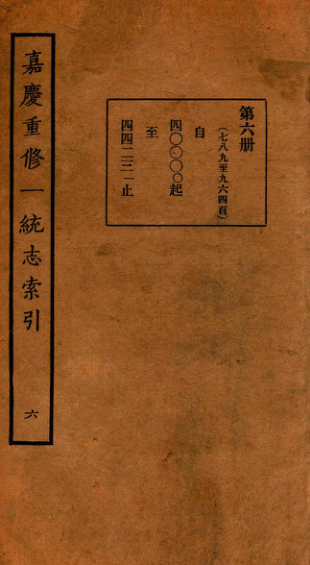 嘉慶重修一統志索引
六
第六册
（七八九至九六四頁）
自
四〇〇〇〇起
至
四四二二一止